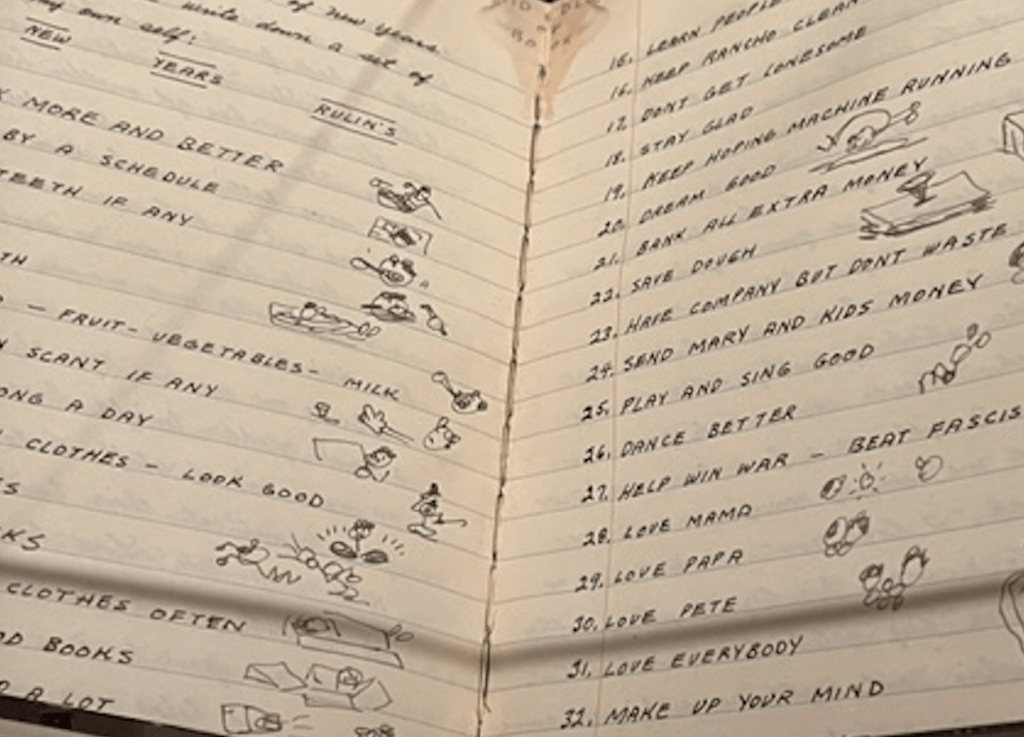 of new years
write down a set of
my own self:
NEW
YEARS
RULIN'S
MORE AND BETTER
BY A SCHEDULE
TEETH IF ANY
TH
- FRUIT - VEGETABLES - MILK
SCANT IF ANY
ONG A DAY
CLOTHES - LOOK GOOD
CLOTHES OFTEN
BOOKS
A LOT
15. LEARN PEOPLE
16. KEEP RANCHO CLEAN
17. DONT GET LONESOME
18. STAY GLAD
19. KEEP HOPING MACHINE RUNNING
20. DREAM GOOD
21. BANK ALL EXTRA MONEY
22. SAVE DOUGH
23. HAVE COMPANY BUT DONT WASTE
24. SEND MARY AND KIDS MONEY
25. PLAY AND SING GOOD
26. DANCE BETTER
27. HELP WIN WAR - BEAT FASCIS
28. LOVE MAMA
29. LOVE PAPA
30. LOVE PETE
31. LOVE EVERYBODY
32. MAKE UP YOUR MIND